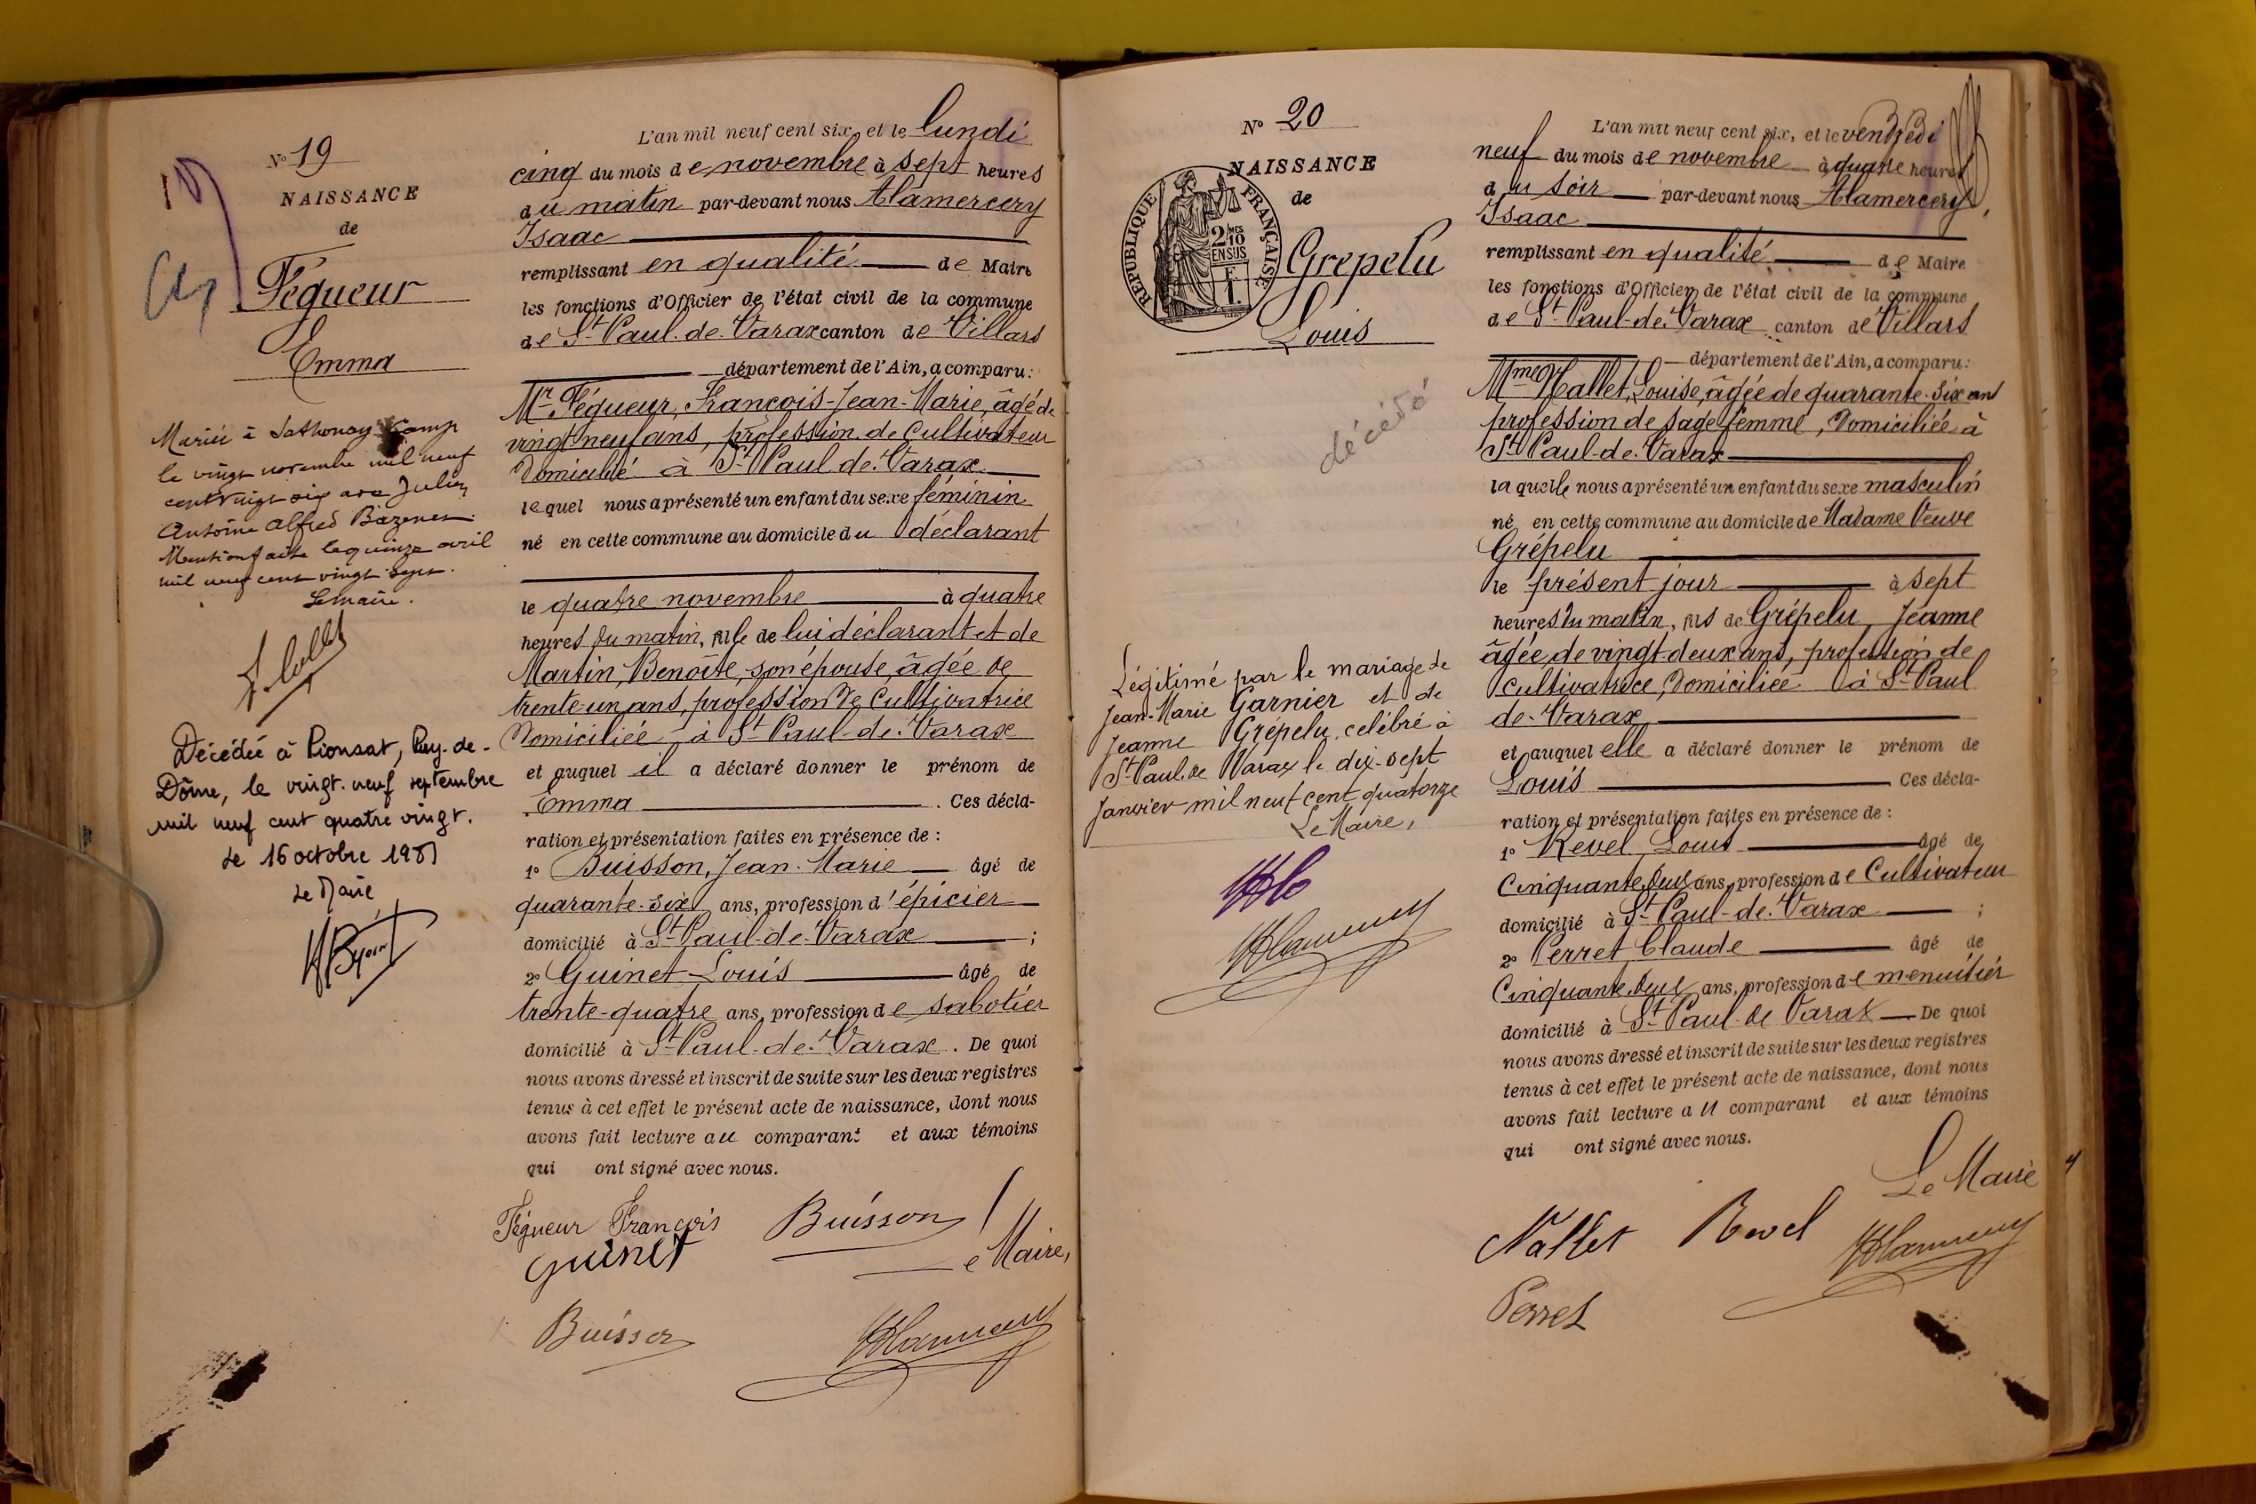 19
N° 19
NAISSANCE
de
Féqueur
Emma
Mariée à Sathonay-Camp
le vingt novembre mil neuf
cent vingt six avec Julien
Antoine Alfred
Mention faite le quinze avril
mil neuf cent vingt sept.
Le maire.
Décédée à Pionsat, Puy-de-
Dôme, le vingt-neuf septembre
mil neuf cent quatre vingt.
Le 16 octobre 1981
Le Maire
L'an mil neuf cent six, et le lundi
cinq du mois de novembre à sept heures
du matin par-devant nous Alamercery
Isaac
remplissant en qualité de Maire
les fonctions d'Officier de l'état civil de la commune
de St Paul-de-Varax canton de Villars
département de l'Ain, a comparu:
Mr Féqueur, François-Jean-Marie, âgé de
vingt-neuf ans, profession de cultivateur
domicilié à St Paul-de-Varax
lequel nous a présenté un enfant du sexe féminin
né en cette commune au domicile du déclarant
le quatre novembre à quatre
heures du matin, fille de lui déclarant et de
Martin, Benoîte, son épouse, âgée de
trente-un ans, profession de Cultivatrice
domiciliée à St Paul-de-Varax
et auquel il a déclaré donner le prénom de
Emma . Ces décla-
ration et présentation faites en présence de :
1° Buisson, Jean-Marie âgé de
quarante-six ans, profession d'épicier
domicilié à St Paul-de-Varax ;
2° Guinet Louis âgé de
trente-quatre ans, profession de sabotier
domicilié à St Paul-de-Varax . De quoi
nous avons dressé et inscrit de suite sur les deux registres
tenus à cet effet le présent acte de naissance, dont nous
avons fait lecture au comparant et aux témoins
qui ont signé avec nous.
Féqueur François Buisson
Guinet Le Maire,
Buisson
N° 20
NAISSANCE
de
RÉPUBLIQUE FRANÇAISE
2/10
EN SUS
Grepelu
Louis
décédé
Légitimé par le mariage de
Jean-Marie Garnier et de
Jeanne Grépelu, célébré à
St Paul de Varax le dix-sept
Janvier mil neuf cent quatorze
Le Maire,
L'an mil neuf cent six, et le vendredi
neuf du mois de novembre à quatre heures
du soir par-devant nous Alamercery,
Isaac
remplissant en qualité de Maire
les fonctions d'Officier de l'état civil de la commune
de St Paul-de-Varax canton de Villars
département de l'Ain, a comparu:
Mme Nallet, Louise, âgée de quarante-six ans
profession de sage femme, domiciliée à
St Paul-de-Varax
laquelle nous a présenté un enfant du sexe masculin
né en cette commune au domicile de Madame Veuve
Grépelu
le présent jour à sept
heures du matin, fils de Grépelu, Jeanne
âgée de vingt-deux ans, profession de
cultivatrice, domiciliée à St Paul
de-Varax
et auquel elle a déclaré donner le prénom de
Louis Ces décla-
ration et présentation faites en présence de :
1° Revel, Louis âgé de
Cinquante deux ans, profession de Cultivateur
domicilié à St Paul-de-Varax ;
2° Perret Claude âgé de
Cinquante deux ans, profession de menuisier
domicilié à St Paul-de Varax De quoi
nous avons dressé et inscrit de suite sur les deux registres
tenus à cet effet le présent acte de naissance, dont nous
avons fait lecture au comparant et aux témoins
qui ont signé avec nous.
Le Maire
Nallet Revel
Perret